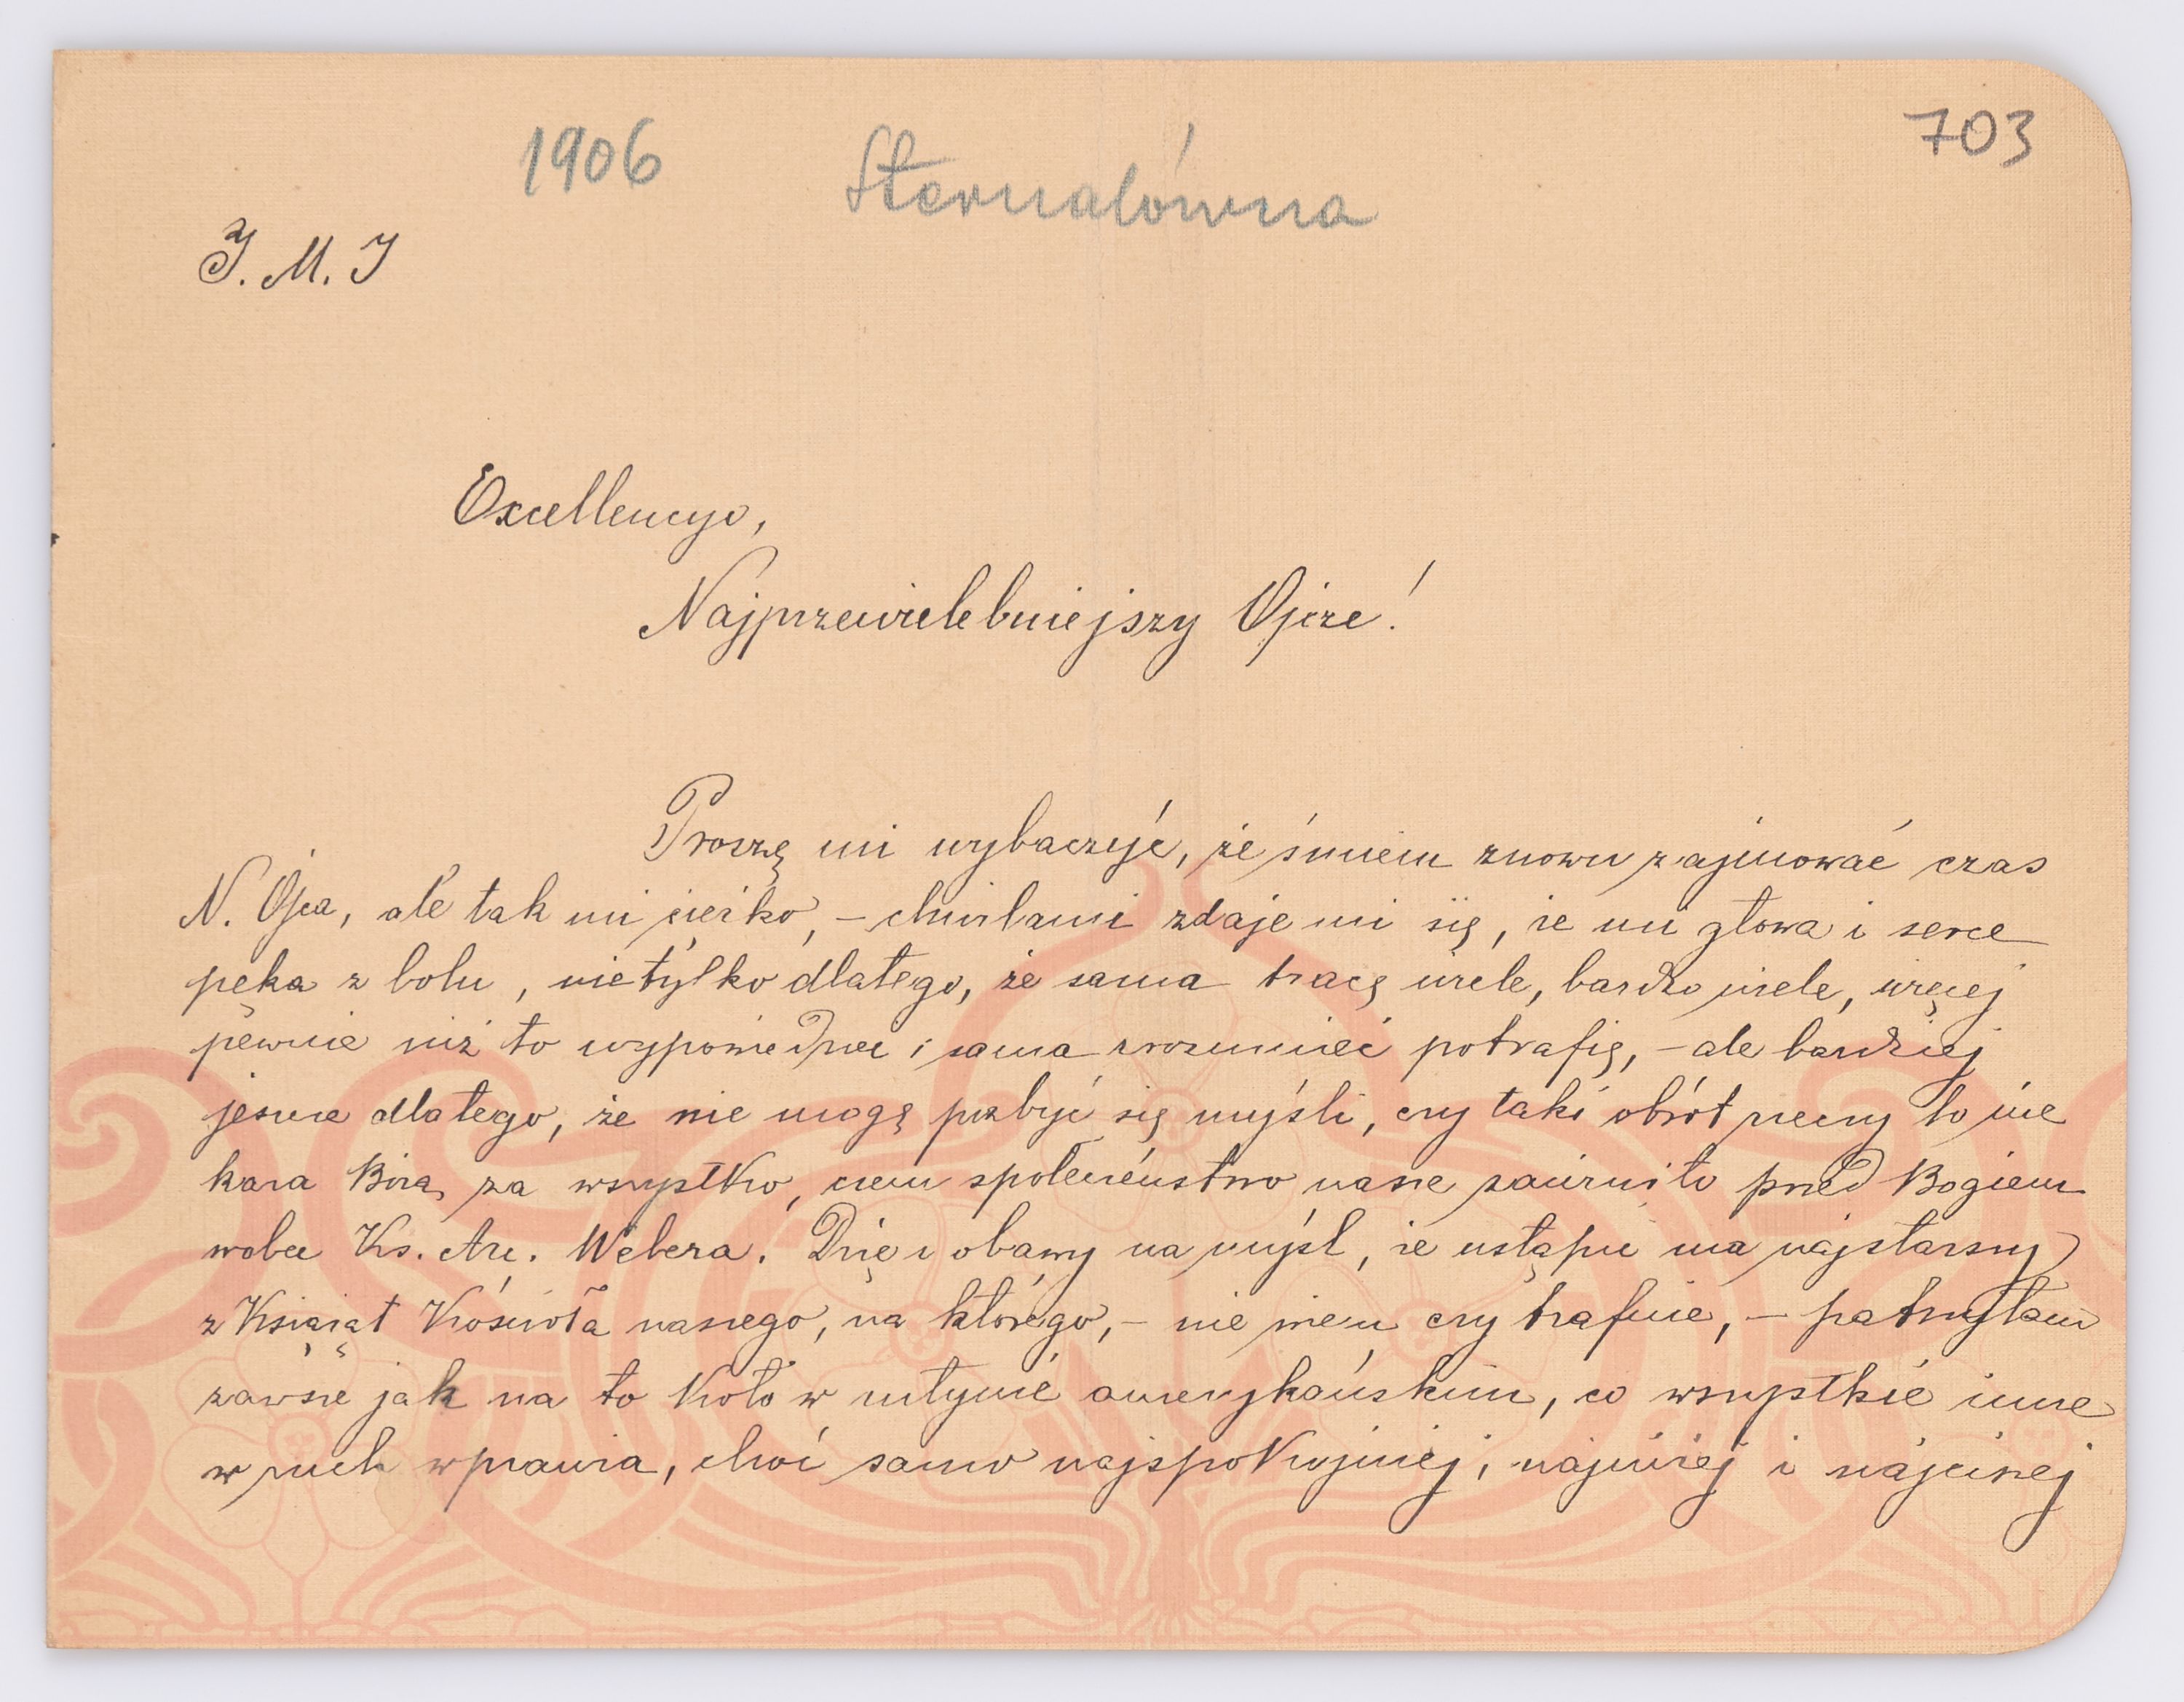 703
1906 Sternalówna
J. M. J
Excellencyo,
Najprzewielebniejszy Ojcze!
Proszę mi wybaczyć, że śmiem znowu zajmować czas
N. Ojca, ale tak mi ciężko, – chwilami zdaje mi się, że mi głowa i serce
pęka z bolu, nietylko dlatego, że sama tracę wiele, bardzo wiele, więcej
pewnie niż to wypowiedzieć i sama zrozumieć potrafię, – ale bardziej
jeszcze dlatego, że nie mogę pozbyć się myśli, czy taki obrót rzeczy to nie
kara Boża za wszystko, czem społeczeństwo nasze zawiniło przed Bogiem
wobec Ks. Arc. Webera. Drżę z obawy na myśl, że ustąpić ma najstarszy
z Książąt Kościoła naszego, na którego, – nie wiem czy trafnie, – patrzyłam
zawsze jak na to koło w młynie amerykańskim, co wszystkie inne
w ruch wprawia, choć samo najspokojniej, najniżej i najciszej